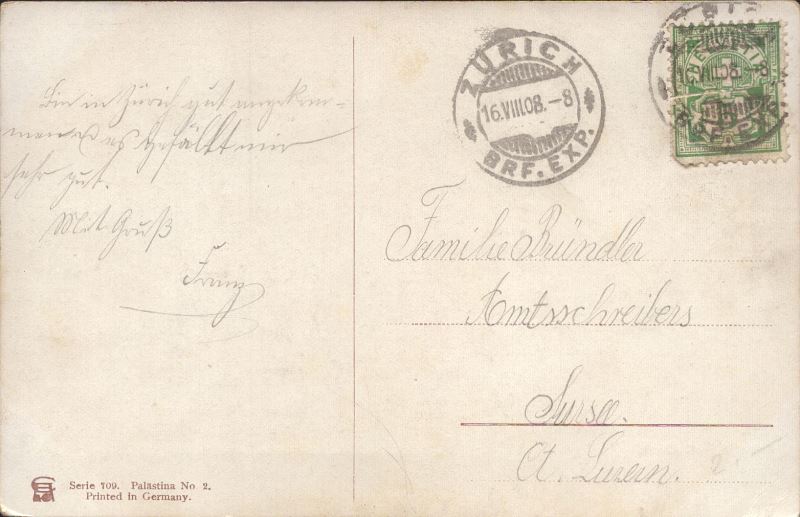 Bin in Zürich gut angekom-
men u es gefällt mir
sehr gut.
Mit Gruß
Franz
ZÜRICH
16.VIII.08.-8
BRF. EXP.
HELVETIA
16.VIII.08.-8
BRF. EXP.
Familie Bründler
Amtsschreibers
Sursee.
Ct. Luzern.
Serie 709. Palästina No 2.
Printed in Germany.